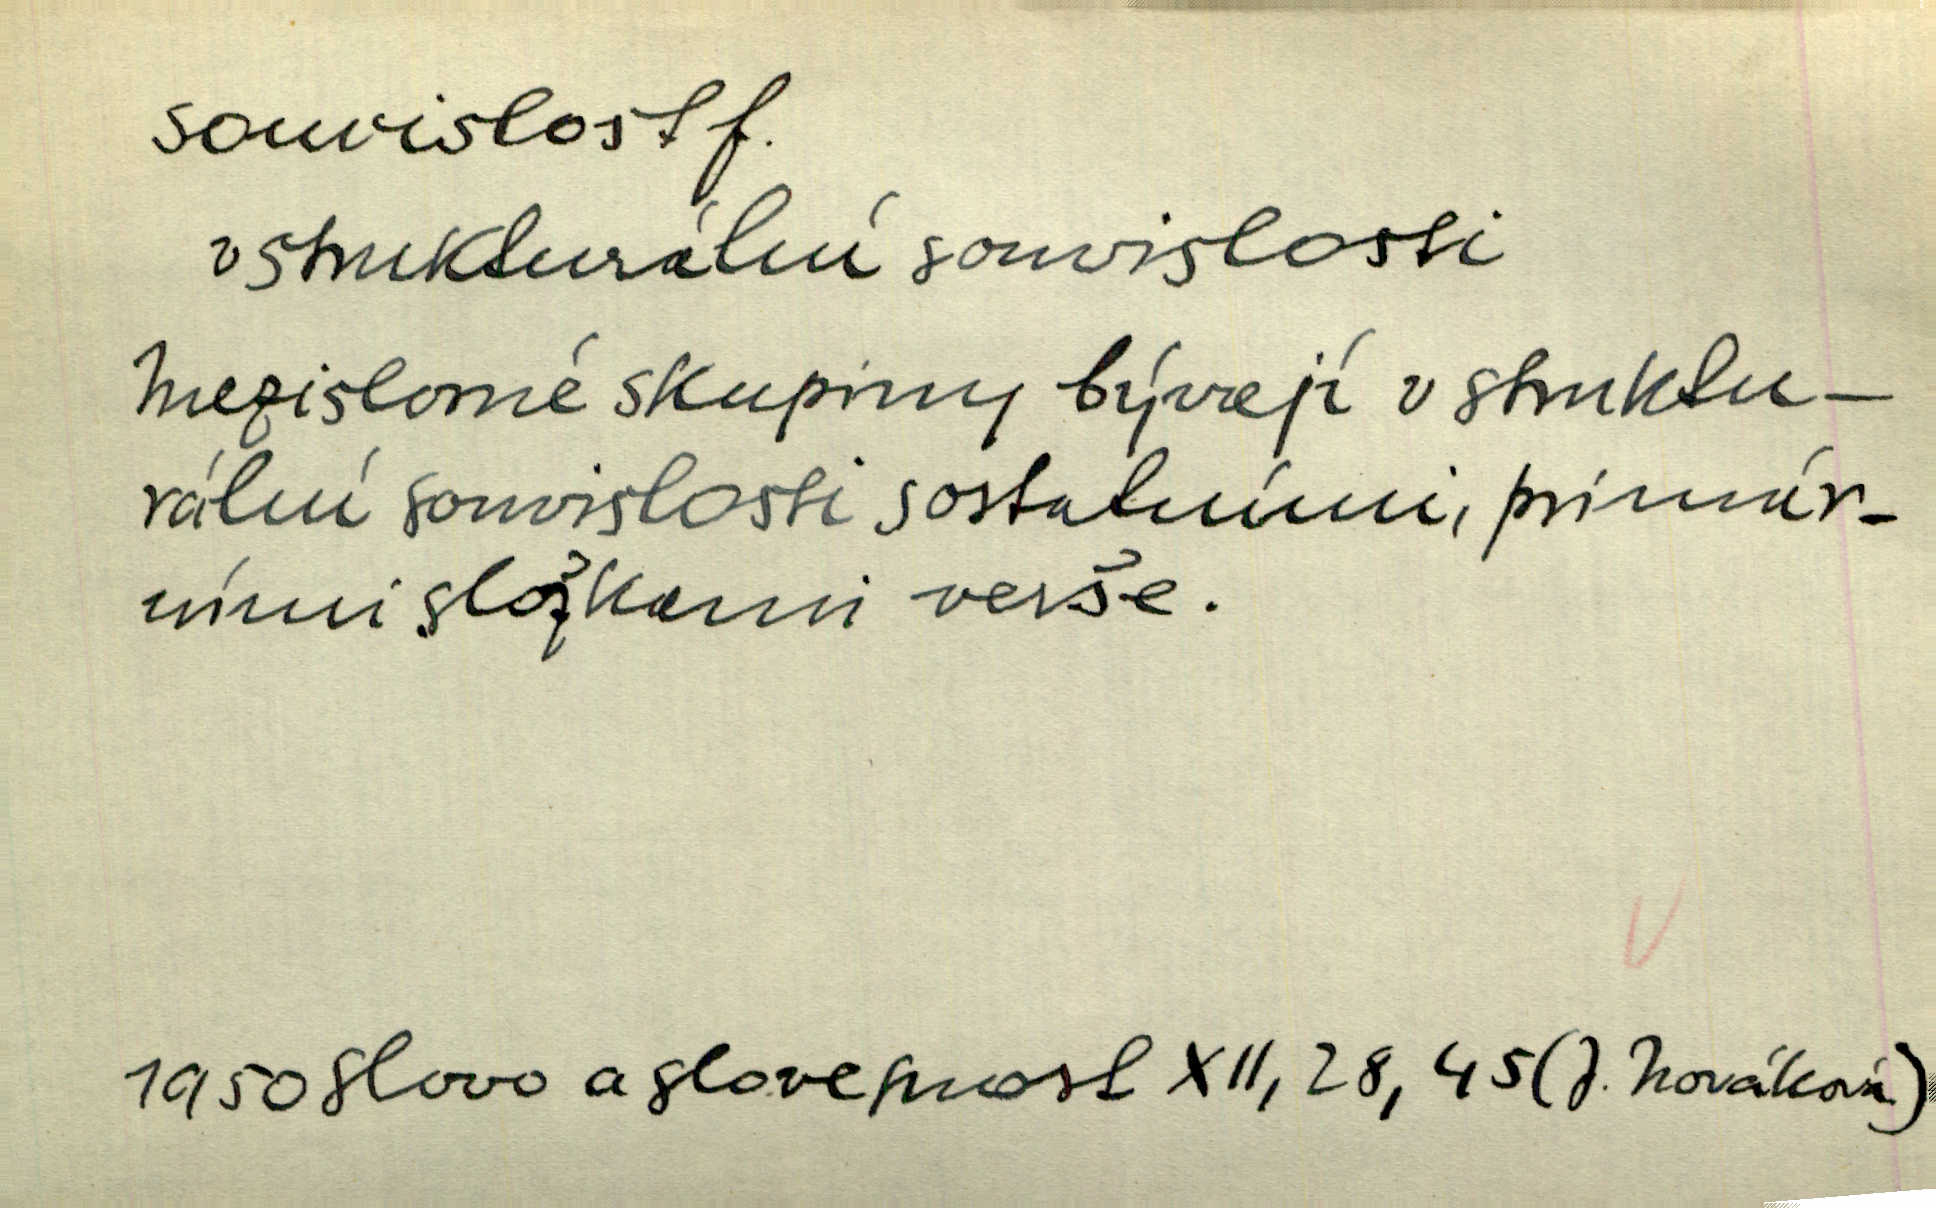 souvislost f.
v strukturální souvislosti
Mezislovné skupiny bývají v struktu-
rální souvislosti s ostatními, primár-
ními složkami verše.
V
1950 Slovo a slovesnost XII, 28, 45 (J. Nováková)